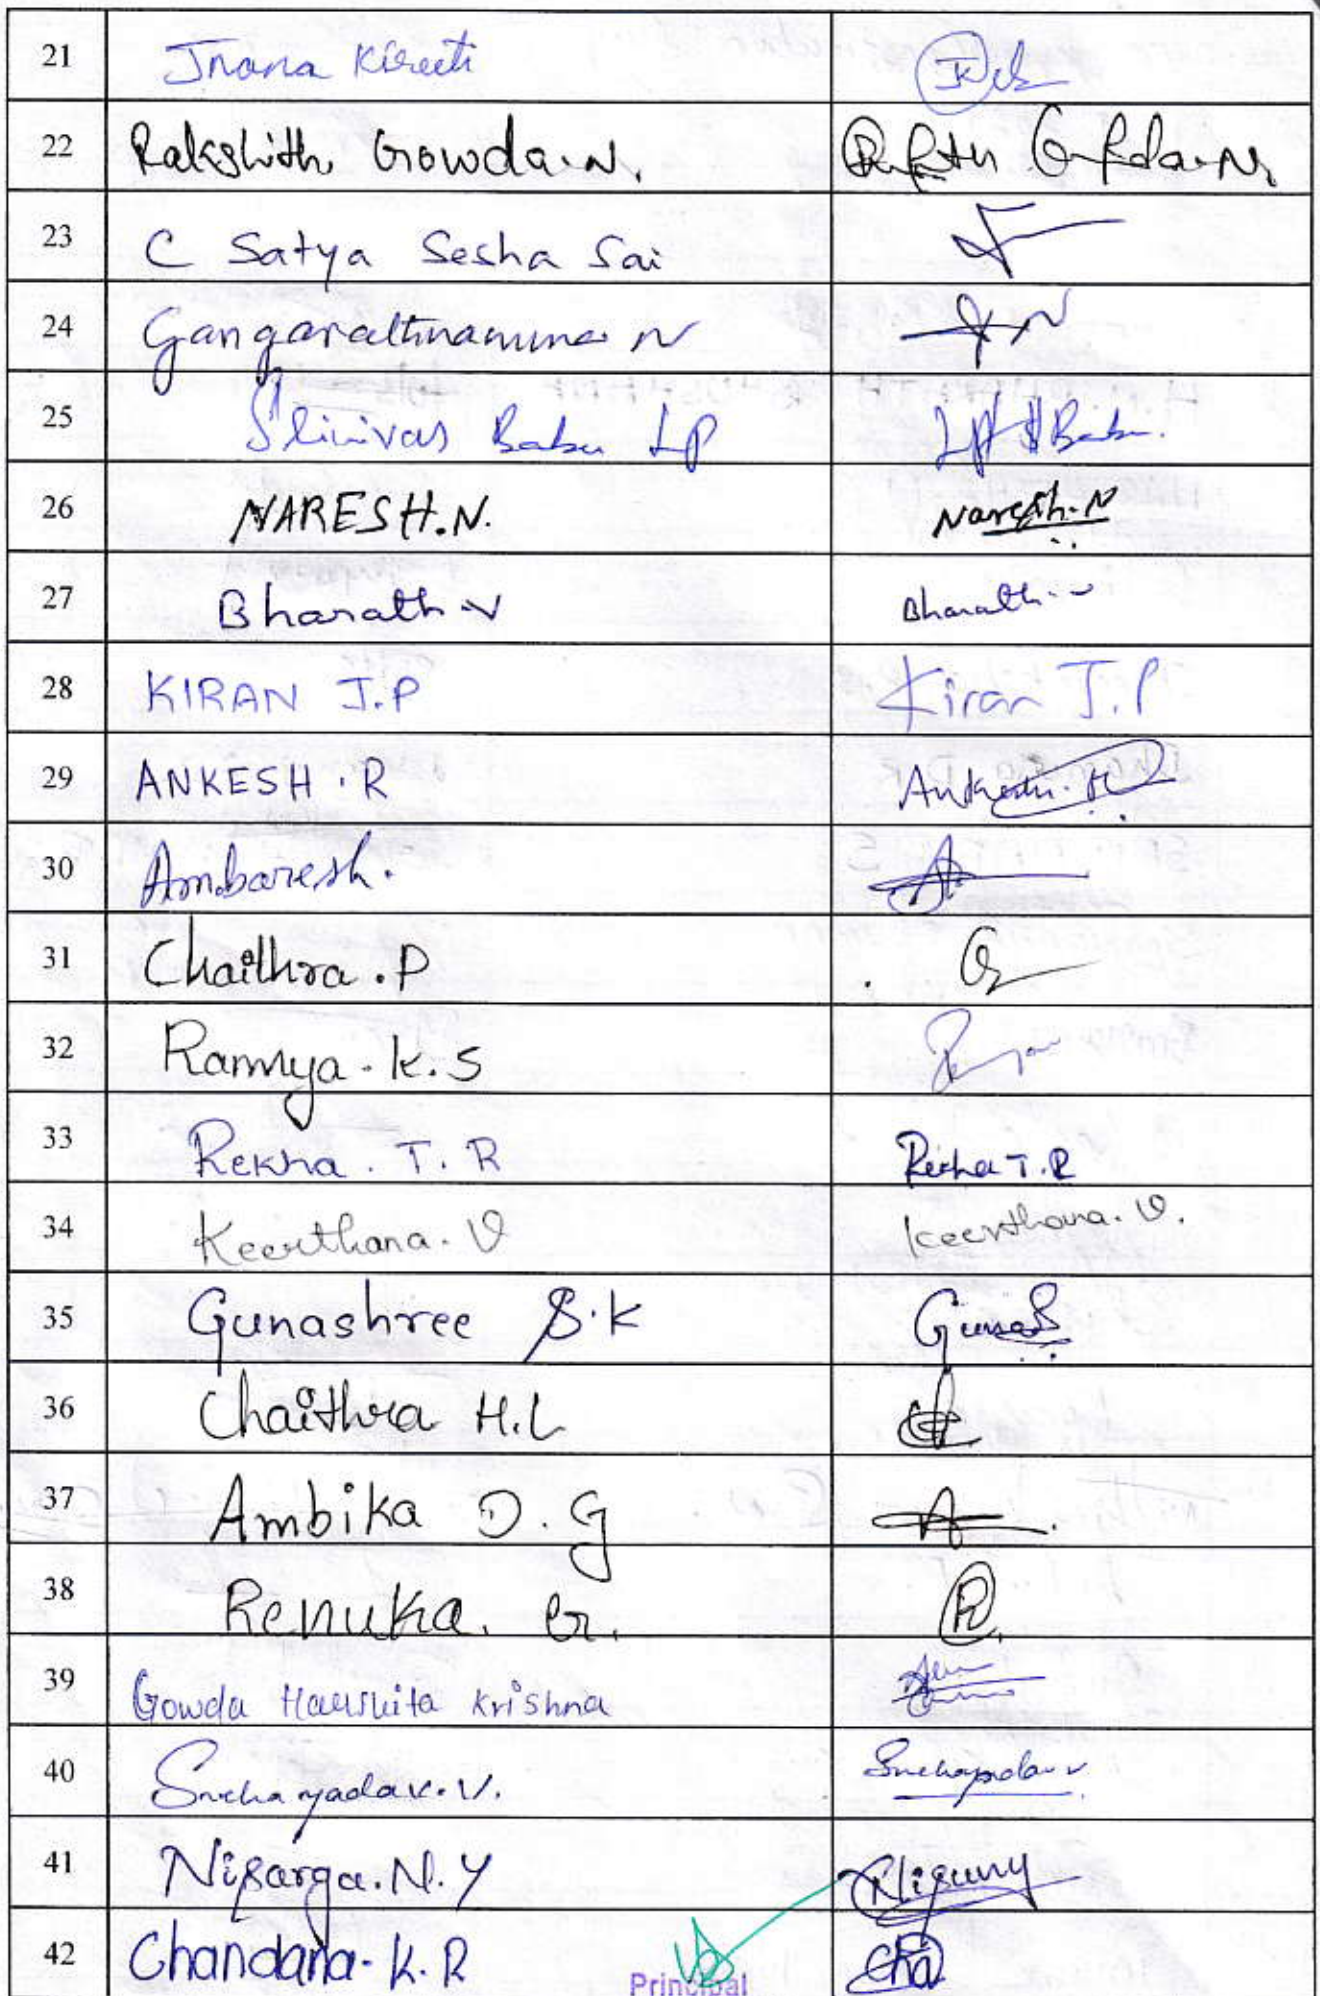 21 Jnana Kireeti
22 Rakshith Gowda.N.
23 C Satya Sesha Sai
24 Gangarathnamma N
25 Srinivas Babu LP LP Babu.
26 NARESH.N. Naresh.N
27 Bharath V Bharath V
28 KIRAN J.P Kiran J.P
29 ANKESH.R Ankesh.R
30 Ambaresh.
31 Chaithra.P
32 Ramya.K.S
33 Rekha.T.R Rekha T.R
34 Keerthana.V Keerthana.V.
35 Gunashree S.K
36 Chaithra H.L
37 Ambika D.G
38 Renuka.G. R
39 Gowda Harshita Krishna
40 Sneha yadav.V. Snehayadav v
41 Nisarga.N.Y
42 Chandana.K.R Cha
Principal